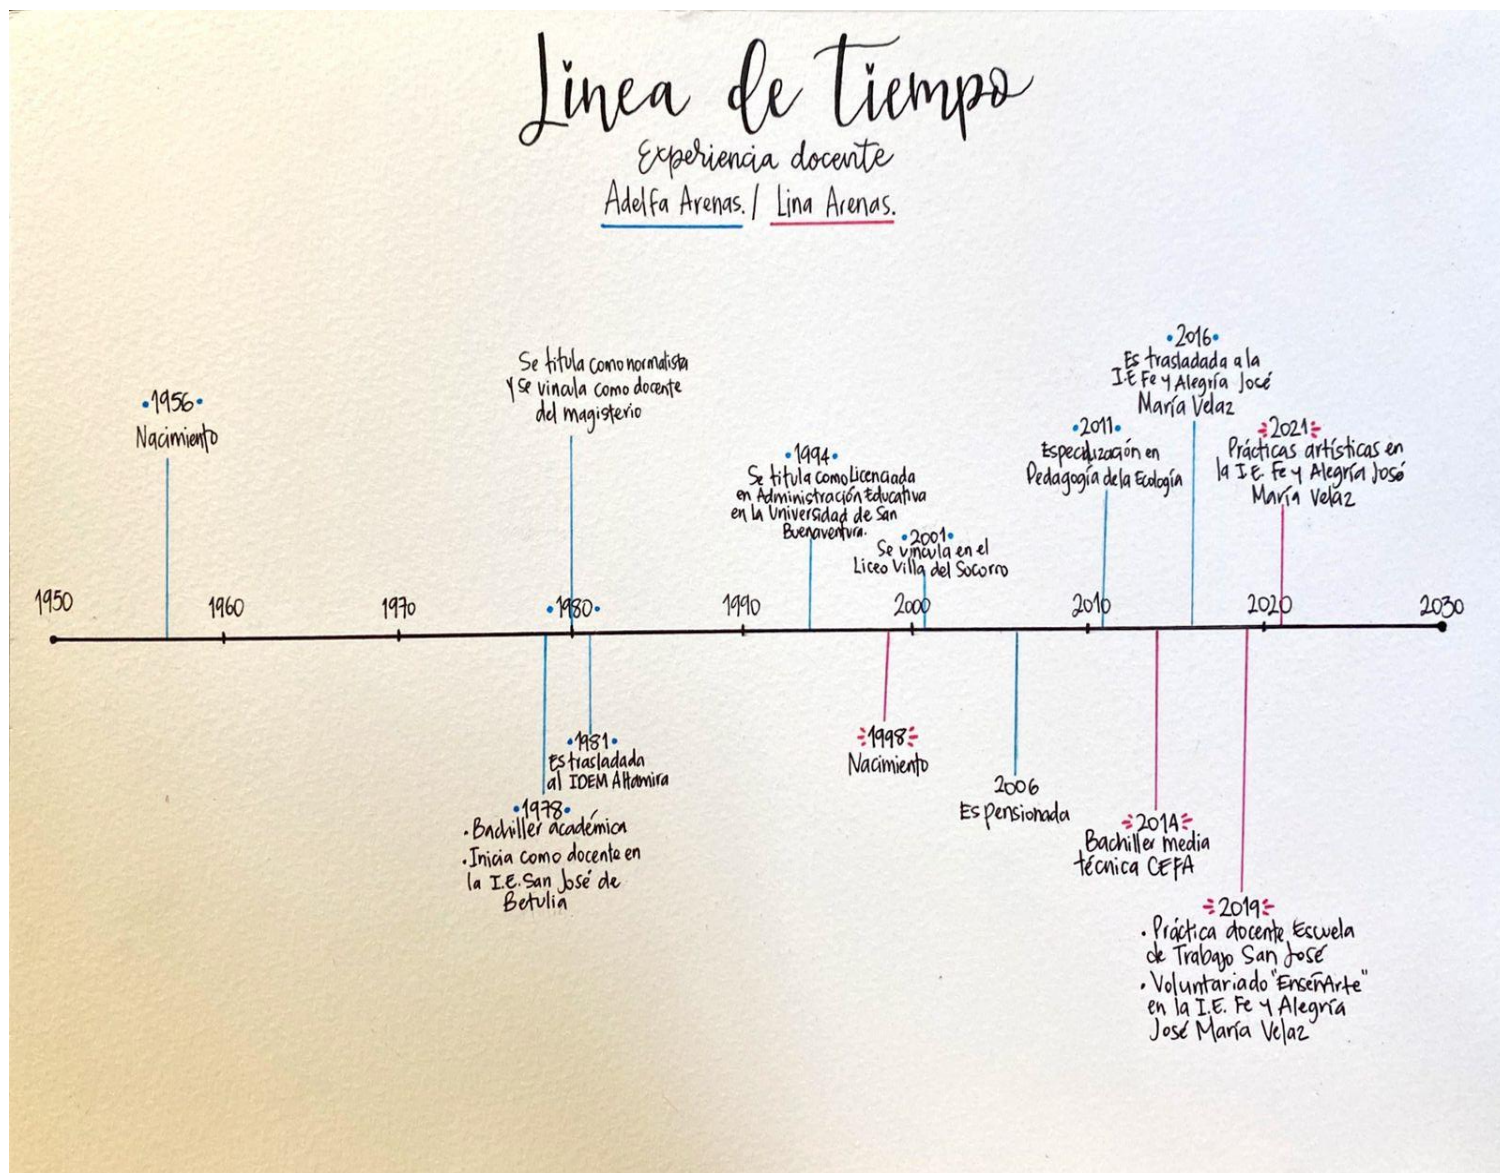 Linea de Tiempo
Experiencia docente
Adelfa Arenas. / Lina Arenas.
•1956•
Nacimiento
Se titula como normalista
y se vincula como docente
del magisterio
•1994•
Se titula como Licenciada
en Administración Educativa
en la Universidad de San
Buenaventura.
•2001•
Se vincula en el
Liceo Villa del Socorro
•2011•
Especilización en
Pedagogía de la Ecología
•2016•
Es trasladada a la
I.E Fe y Alegría José
María Velaz
2021
Prácticas artísticas en
la I.E. Fe y Alegría José
María Velaz
1950 1960 1970 •1980• 1990 2000 2010 2020 2030
•1981•
Es trasladada
al IDEM Altamira
•1978•
• Bachiller académica
• Inicia como docente en
la I.E. San José de
Betulia
1998
Nacimiento
2006
Es pensionada
2014
Bachiller media
técnica CEFA
2019
• Práctica docente Escuela
de Trabajo San José
• Voluntariado "EnseñArte"
en la I.E. Fe y Alegría
José María Velaz